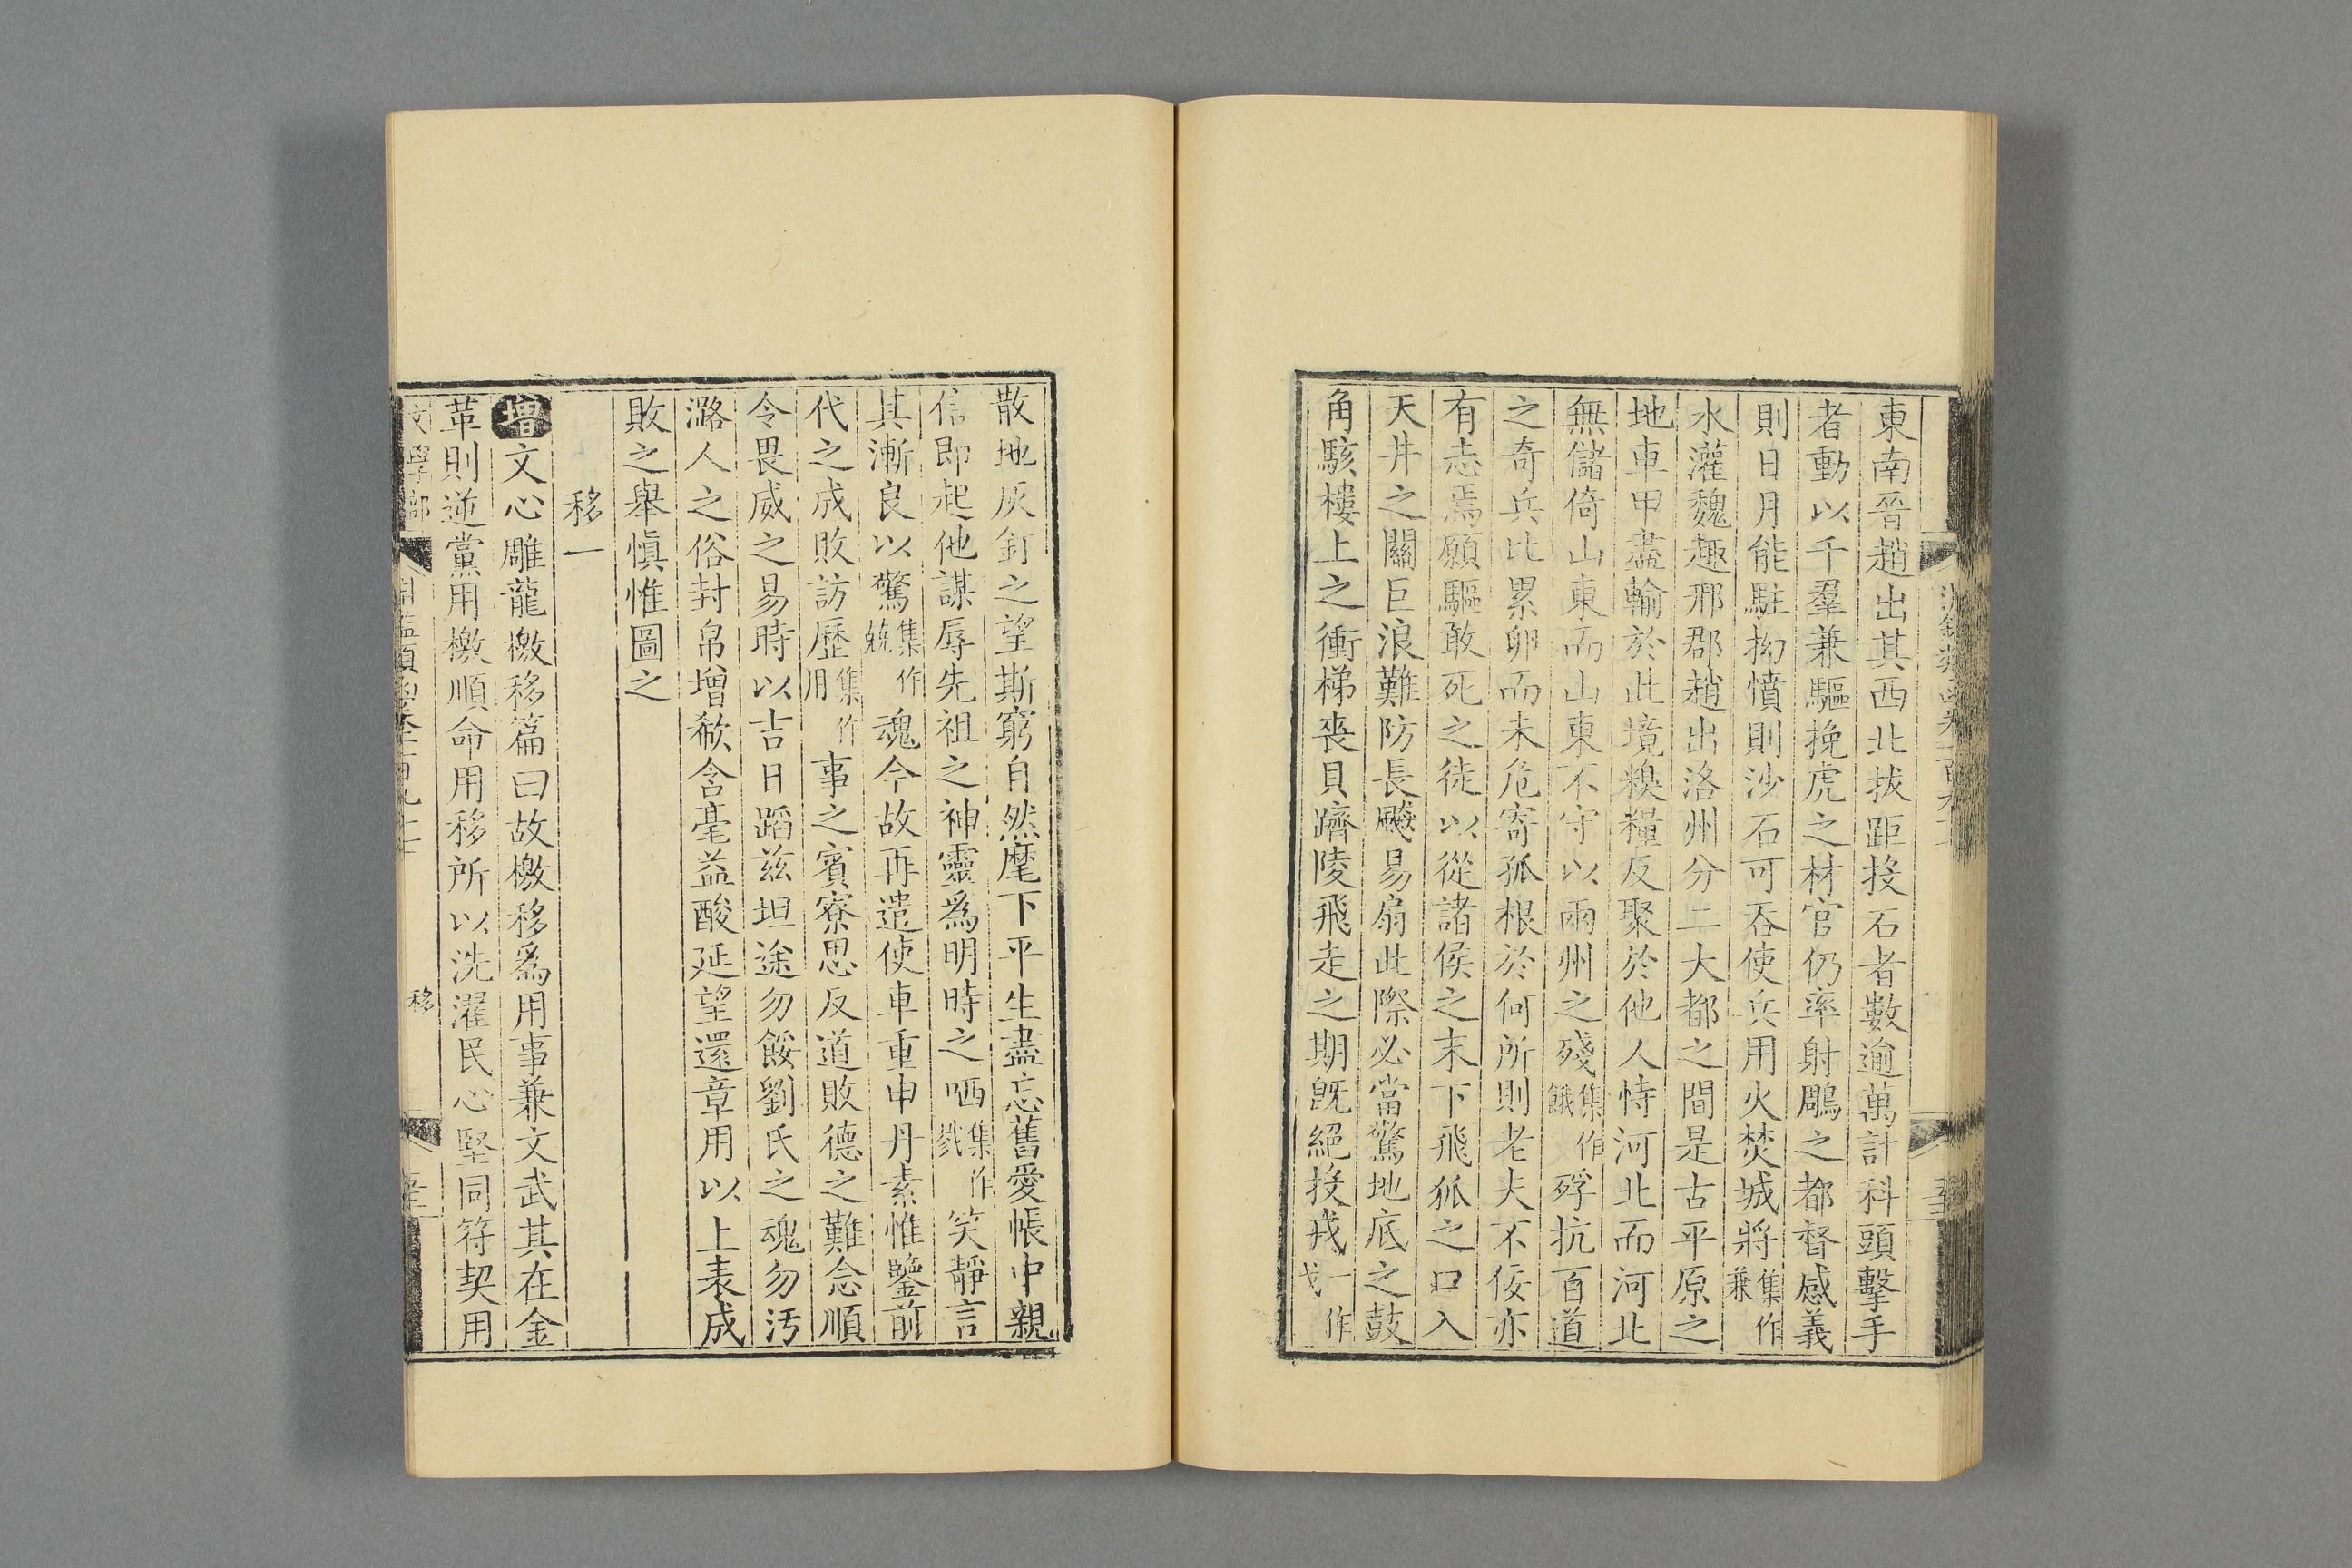 東南晉趙出其西北拔距投石者數逾萬計科頭擊手
者動以千羣兼驅挽虎之材官仍率射鵰之都督感義
則日月能駐拗憤則沙石可吞使兵用火焚城將集作兼
水灌魏趣邢郡趙出洛州分二大都之間是古平原之
地車甲盡輸於此境糗糧反聚於他人恃河北而河北
無儲倚山東而山東不守以兩州之殘集作餓殍抗百道
之奇兵比累卵而未危寄孤根於何所則老夫不佞亦
有志焉願驅敢死之徒以從諸侯之末下飛狐之口入
天井之關巨浪難防長飈易扇此際必當驚地底之鼓
角駭樓上之衝梯喪貝躋陵飛走之期旣絕投戎一作戈
散地灰釘之望斯窮自然麾下平生盡忘舊愛帳中親
信即起他謀辱先祖之神靈爲明時之哂集作戮笑靜言
其漸良以驚集作兢魂今故再遣使車重申丹素惟鑒前
代之成敗訪歷集作用事之賓寮思反道敗德之難念順
令畏威之易時以吉日蹈兹坦途勿餒劉氏之魂勿汚
潞人之俗封帛增欷含毫益酸延望還章用以上表成
敗之舉愼惟圖之
移一
增文心雕龍檄移篇曰故檄移爲用事兼文武其在金
革則逆黨用檄順命用移所以洗濯民心堅同符契用
文學部
移